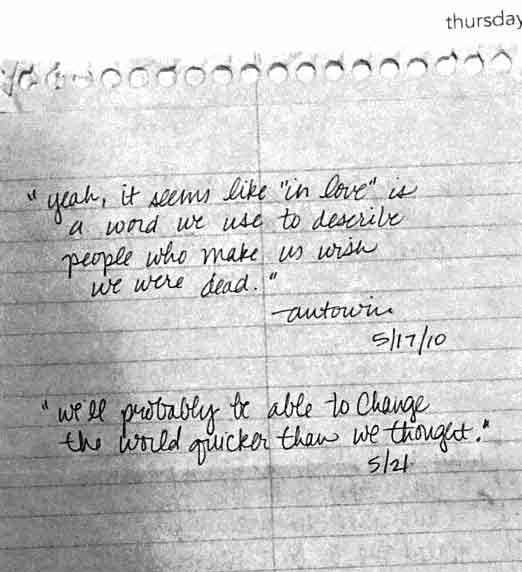 thursday
"yeah, it seems like "in love" is
a word we use to describe
people who make us wish
we were dead."
-autowin
5/17/10
"we'll probably be able to Change
the world quicker than we thought."
5/21